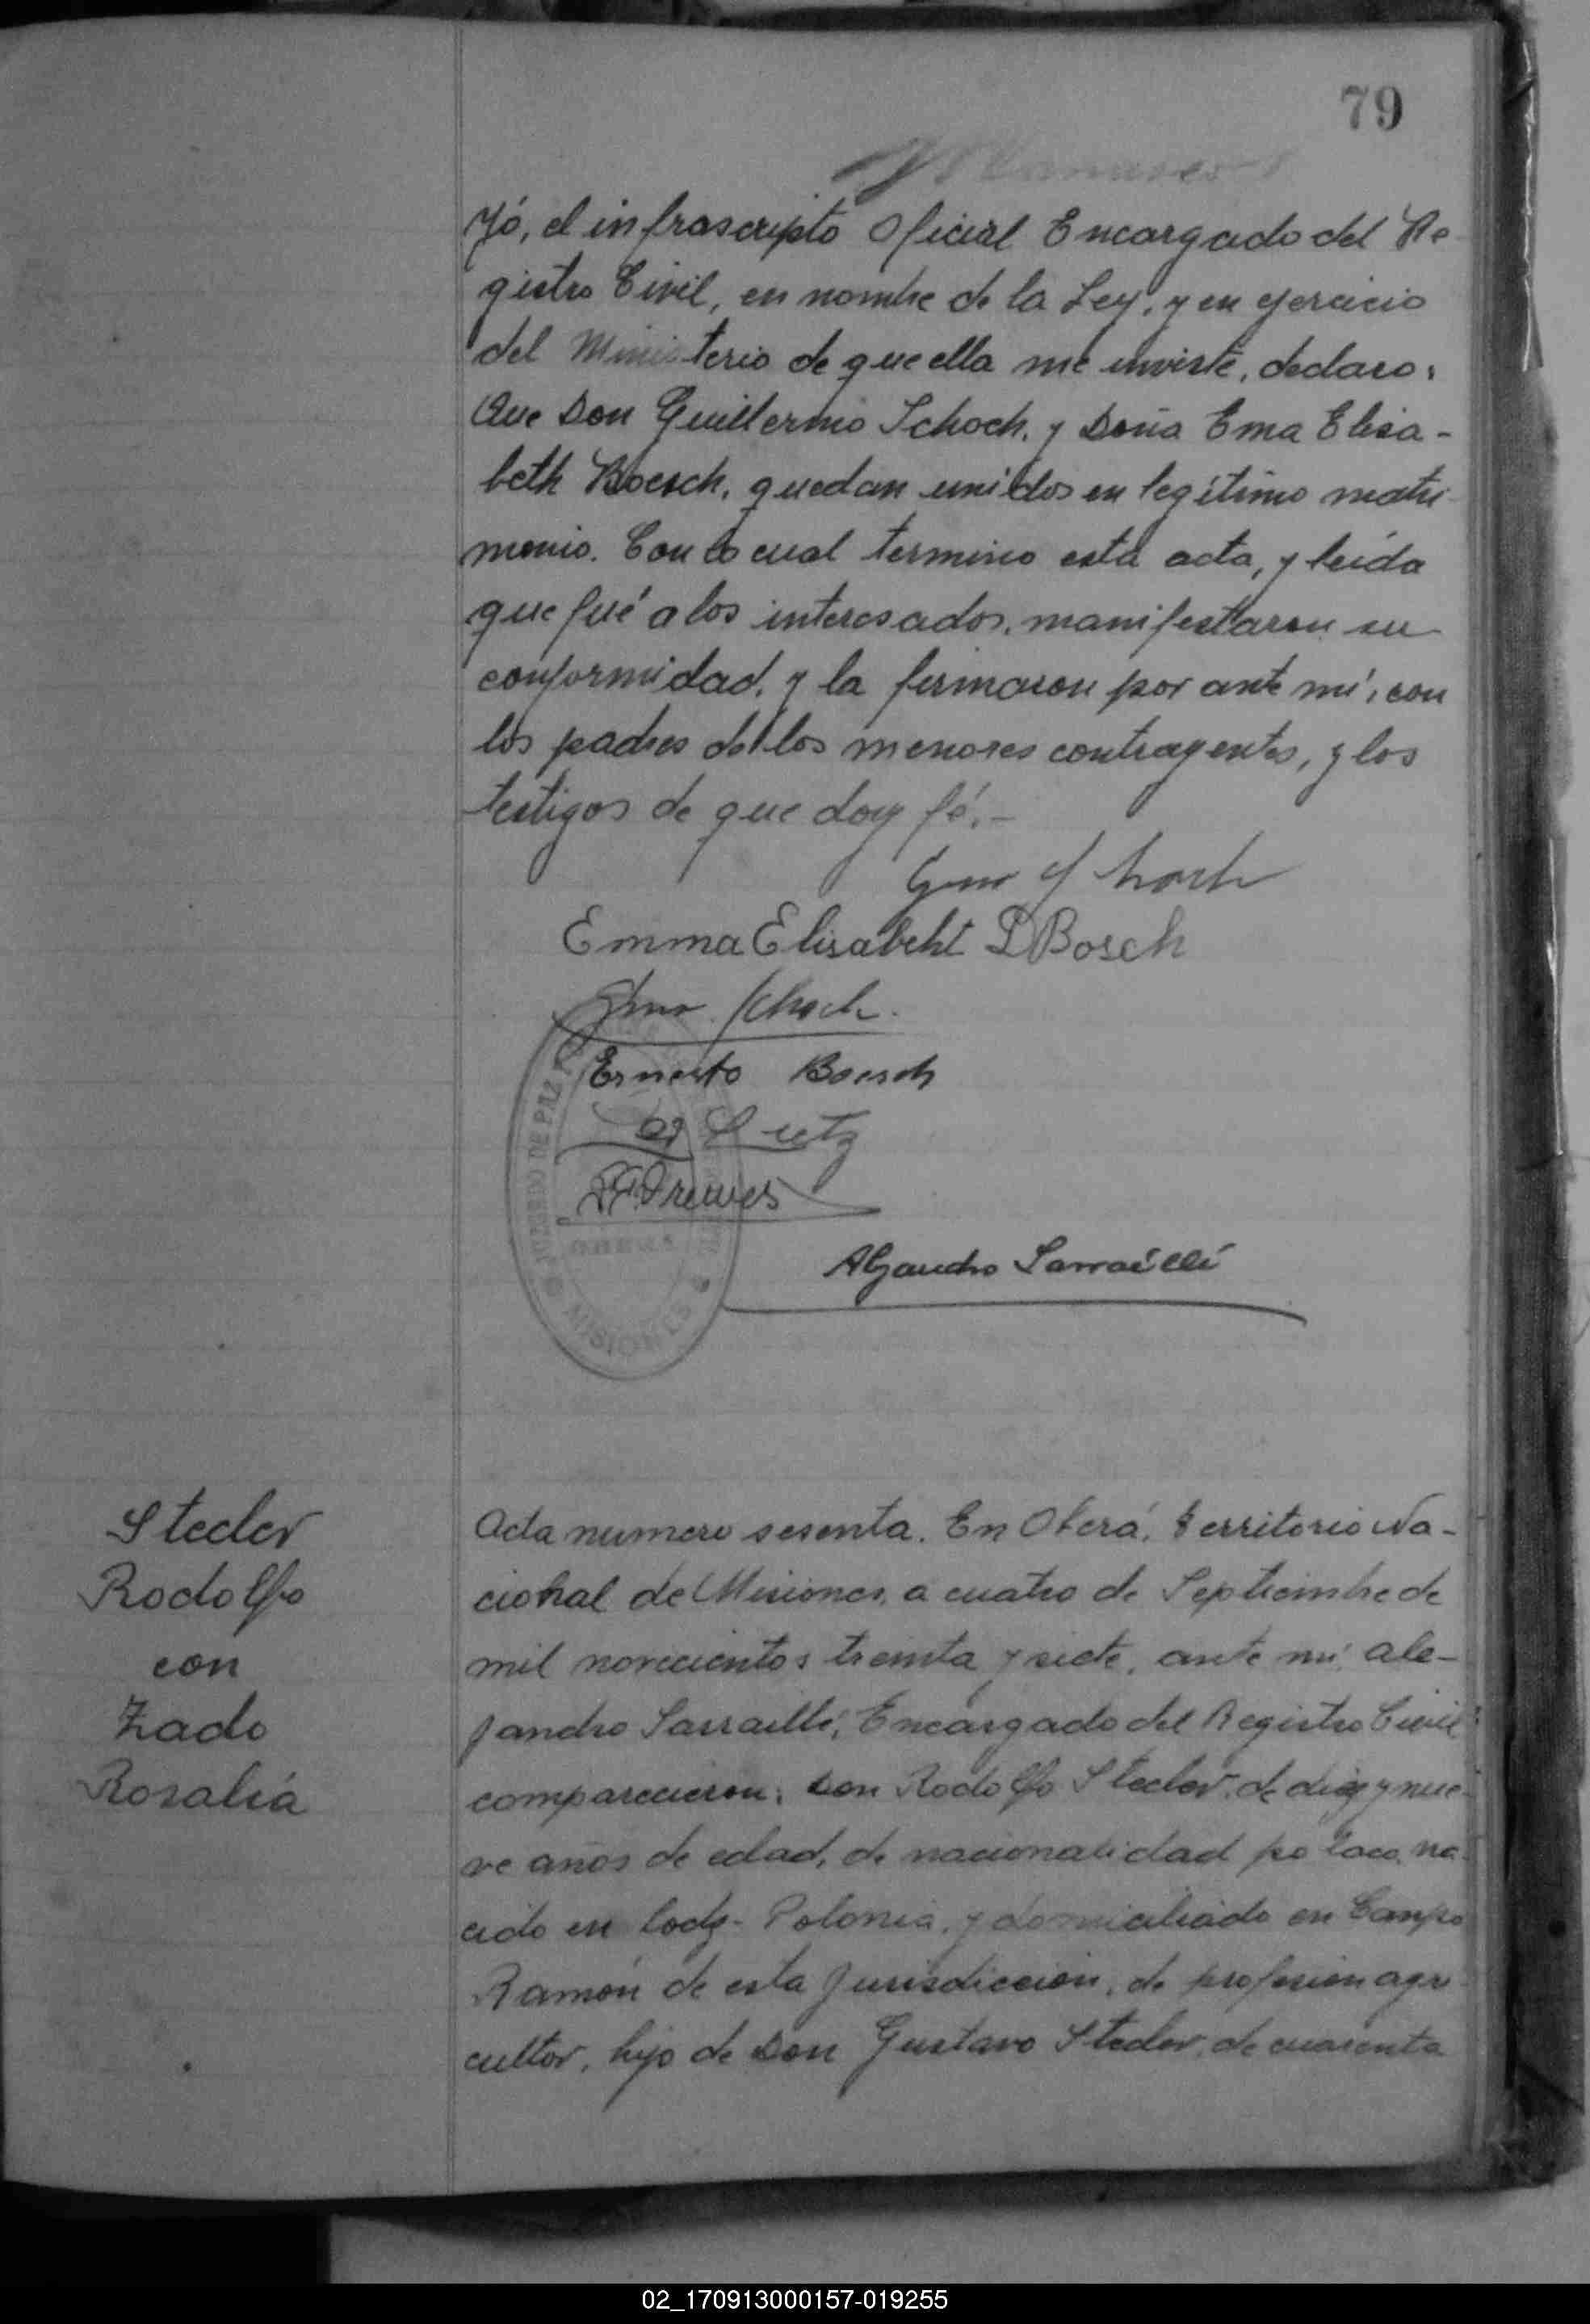 79
Yó, el infrascripto Oficial Encargado del Re
gistro Civil, en nombre de la Ley, y en ejercicio
del Ministerio de que ella me inviste, declaro:
Que Don Guillermo Schoch, y Doña Ema Elisa-
beth Boesch, quedan unidos en legítimo matri
monio. Con lo cual termino esta acta, y leída
que fué a los interesados, manifestaron su
conformidad, y la firmaron por ante mí, con
los padres de los menores contrayentes, y los
testigos de que doy fé.-
Gmo Schoch
Emma Elisabeht Bosch
Gmo Schoch.
Ernesto Boesch
Lutz
Drewes
JUZGADO DE PAZ
OBERA
MISIONES
Alejandro Sarraillé
Steclor
Rodolfo
con
Zado
Rosalía
Acta numero sesenta. En Oberá, Territorio Na-
cional de Misiones, a cuatro de Septiembre de
mil novecientos treinta y siete, ante mí, Ale-
jandro Sarraillé, Encargado del Registro Civil
comparecieron: Don Rodolfo Steclor, de diez y nue
ve años de edad, de nacionalidad polaca, na
cido en Lodz- Polonia, y domiciliado en Campo
Ramón de esta Jurisdiccion, de profesion agri
cultor, hijo de Don Gustavo Steclor, de cuarenta
02_170913000157-019255